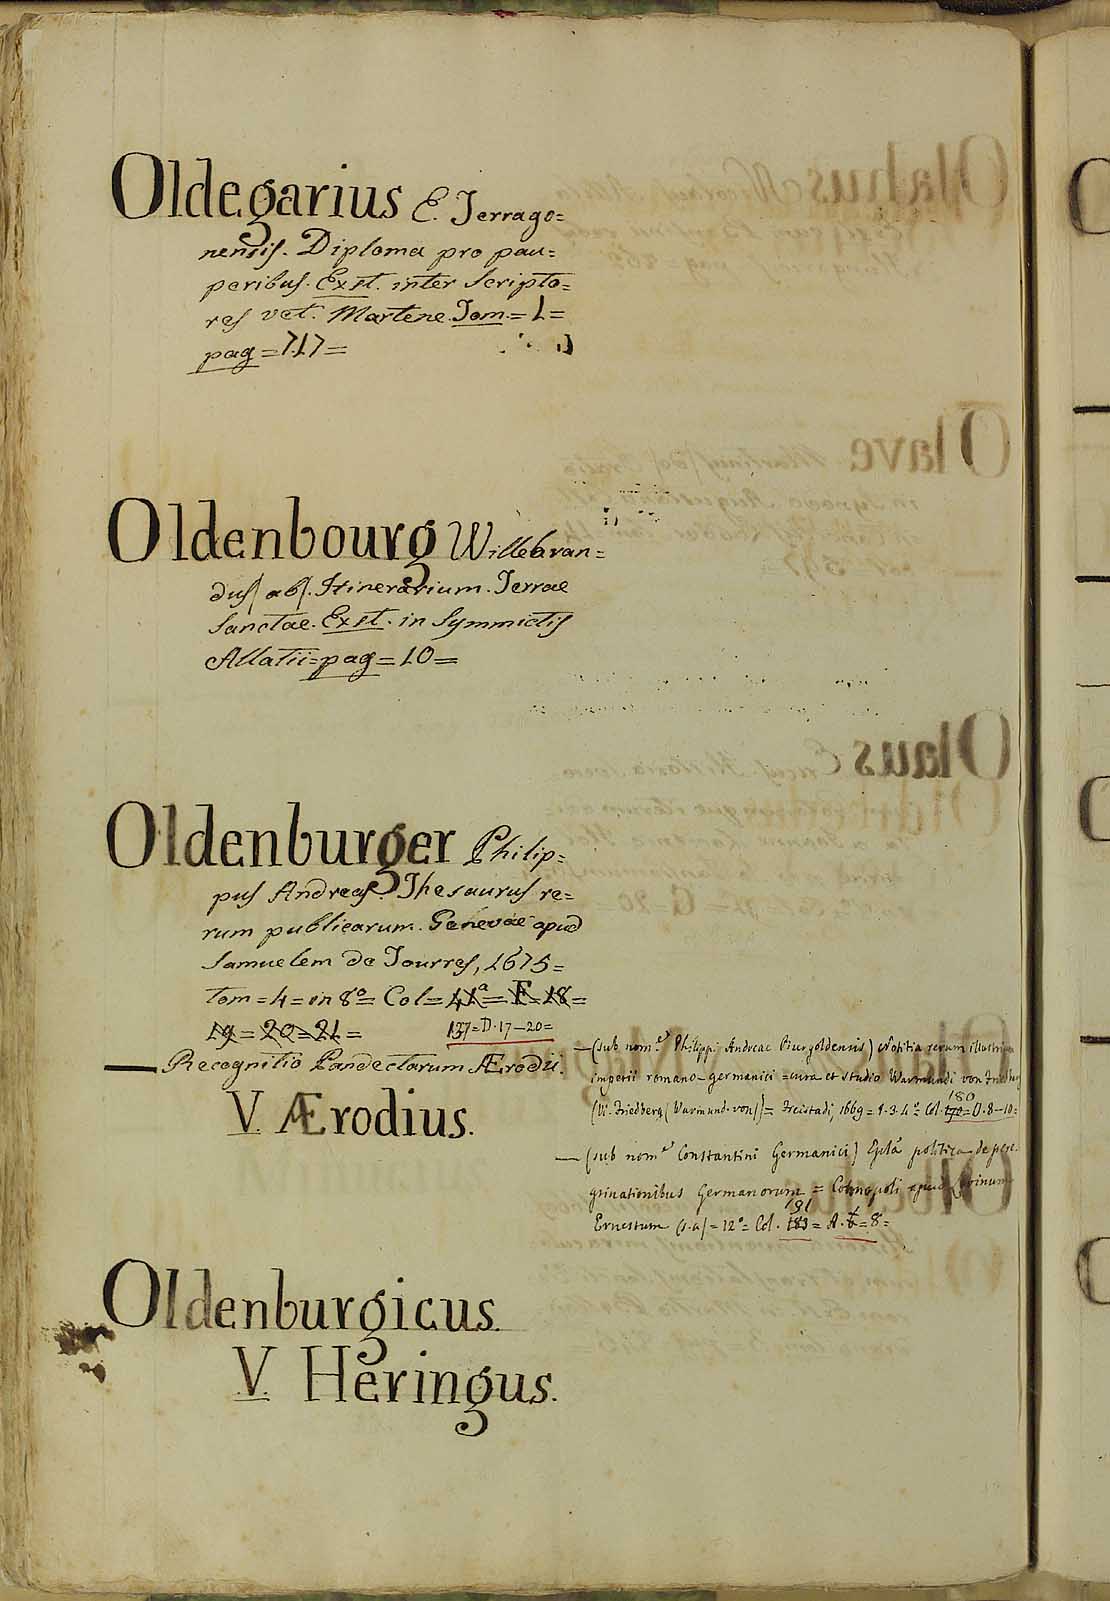 Oldegarius E. Terrago=
nensis. Diploma pro pau=
peribus. Exst. inter Scripto=
res vet. Martene. Tom. = 1 =
pag = 717 =
Oldenbourg Willebran=
dus/ab/. Itinerarium. Terrae
Sanctae. Exst. in Symmictis
Allatii = pag = 10 =
Oldenburger Philip=
pus Andreas. Thesaurus re=
rum publicarum. Genevae apud
Samuelem de Tourres, 1675 =
Tom = 4 = in 8º = Col = 41ª = F = 18 =
19 = 20 = 21 =
137 = D. 17 — 20 =
— Recognitio Pandectarum Ærodii.
V. Ærodius.
— (sub nom.e Philippi Andreae Burgoldensis) Notitia rerum illustrium
imperii romano-germanici = cura et studio Warmundi von Friedberg
(W. Friedberg (Warmund. von)) = Freistadi, 1669 = 1. 3. 4º = Col. 170 180 = D. 8 — 10 =
— (sub nom.e Constantini Germanici) Epla politica de pere-
grinationibus Germanorum = Cosmopoli apud
Ernestum (s.a) = 12º = Col. 183 181 = A. 6 = 8 =
Oldenburgicus.
V. Heringus.